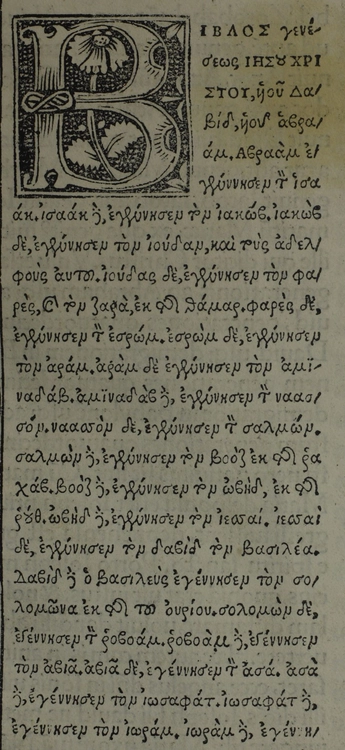 ΒΙΒΛΟΣ γενέ-
σεως ΙΗΣΟΥ ΧΡΙ
ΣΤΟΥ, ὑοῦ Δα-
βὶδ, ὑοῦ ἀβρα-
άμ. Αβραὰμ ἐ-
γέννησεν τὸν ἰσα
άκ. ἰσαάκ δὲ, ἐγέννησεν τὸν ἰακώβ. ἰακὼβ
δὲ, ἐγέννησεν τὸν ἰούδαν, καὶ τοὺς ἀδελ-
φοὺς αὐτοῦ. ἰούδας δὲ, ἐγέννησεν τὸν φα-
ρὲς, καὶ τὸν ζαρὰ, ἐκ τῆς θάμαρ. φαρὲς δὲ,
ἐγέννησεν τὸν ἐσρώμ. ἐσρὼμ δὲ, ἐγέννησεν
τὸν ἀράμ. ἀρὰμ δὲ ἐγέννησεν τὸν ἀμϊ-
ναδάβ. ἀμϊναδὰβ δὲ, ἐγέννησεν τὸν ναασ-
σόν. ναασσὸν δὲ, ἐγέννησεν τὸν σαλμών.
σαλμὼν δὲ, ἐγέννησεν τὸν βοὸζ ἐκ τῆς ῥα
χάβ. βοὸζ δὲ, ἐγέννησεν τὸν ὠβὴδ, ἐκ τῆς
ῥούθ. ὠβὴδ δὲ, ἐγέννησεν τὸν ἰεσσαί. ἰεσσαὶ
δὲ, ἐγέννησεν τὸν δαβὶδ τὸν βασιλέα.
Δαβὶδ δὲ ὁ βασιλεὺς ἐγέννησεν τὸν σο-
λομῶνα ἐκ τῆς τοῦ οὐρίου. σολομὼν δὲ,
ἐγέννησεν τὸν ῥοβοάμ. ῥοβοὰμ δὲ, ἐγέννησεν
τὸν ἀβιᾶ. ἀβιᾶ δὲ, ἐγέννησεν τὸν ἀσά. ἀσὰ
δὲ, ἐγέννησεν τὸν ἰωσαφάτ. ἰωσαφὰτ δὲ,
ἐγέννησεν τὸν ἰωράμ. ἰωρὰμ δὲ, ἐγέννη-